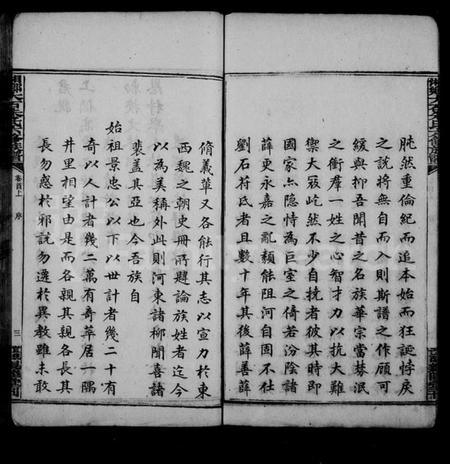 肫然重倫紀而追本始而狂誕悖戾
之說將無自而入則斯譜之作顧可
緩與抑吾聞昔之名族華宗當棼泯
之衝羣一姓之心智才力以抗大難
禦大寇屹然不少自撓者彼其時即
國家亦隱恃為巨室之倚若汾陰諸
薛更永嘉之亂類能阻河自固不仕
劉石苻氏者且數十年其後薛善薛
脩義輩又各能行其志以宣力於東
西魏之朝史冊所題論族姓者迄今
以為美稱外此則河東諸柳聞喜諸
裴蓋其亞也今吾族自
始祖景忠公以下以世計者幾二十有
奇以人計者幾二萬有奇萃居一隅
井里相望由是而各親其親各長其
長勿惑於邪說勿遷於異教雖未敢
卷首上
序
三